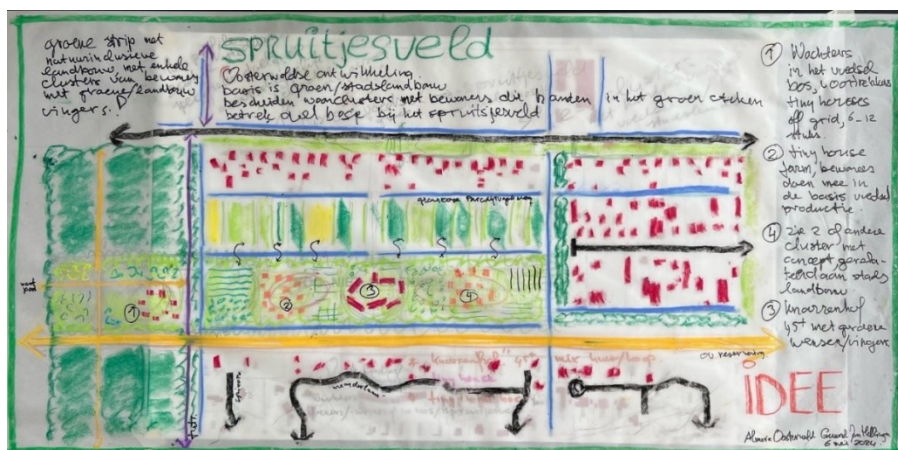 groene strip met
natuurinclusieve
landbouw met enkele
clusters van bewoners
met groene/landbouw
vingers.
SPRUITJESVELD
Oosterwoldse ontwikkeling.
basis is groen/stadslandbouw
bescheiden woonclusters met bewoners die handen in het groen steken
betrek de bij het spruitjesveld
1 Wachters
in het voedsel
bos,
tiny houses
off grid, 6-12
stuks.
2 tiny house
farm, bewoners
doen mee in
de basis voedsel
productie.
4 zie 2 of andere
cluster met
concept gerela-
teerd aan stads
landbouw
3 Knarrenhof
45+ met groene
wensen/vingers
1
2
3
4
OV reservering
IDEE
Almere Oosterwold
6 mei 2024